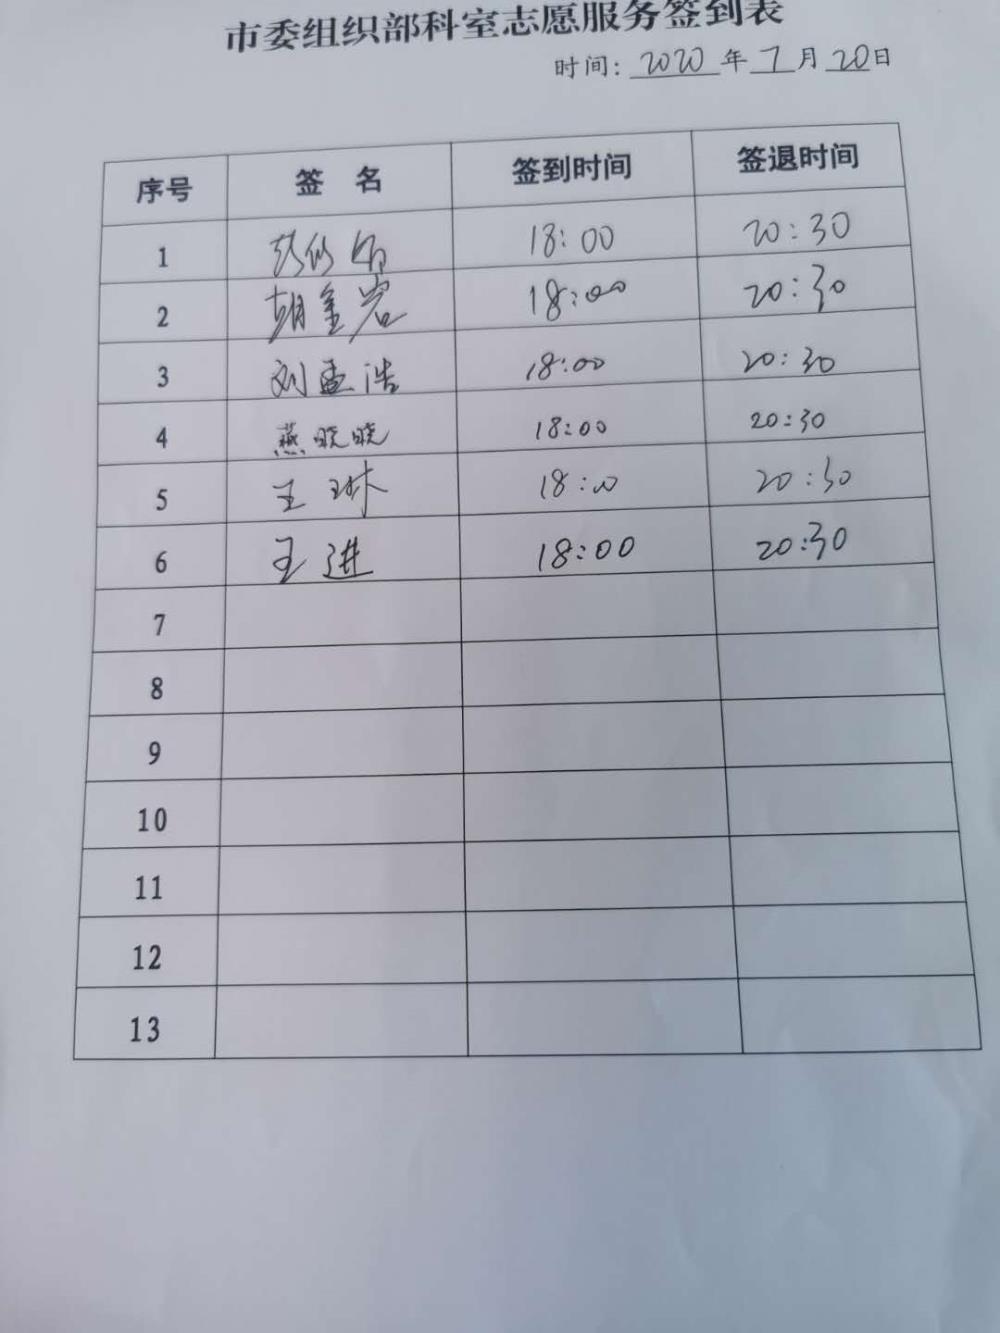 市委组织部科室志愿服务签到表
时间：2020年7月20日
序号 签 名 签到时间 签退时间
1 18:00 20:30
2 胡金岩 18:00 20:30
3 刘孟浩 18:00 20:30
4 燕晓晓 18:00 20:30
5 王琳 18:00 20:30
6 王进 18:00 20:30
7
8
9
10
11
12
13